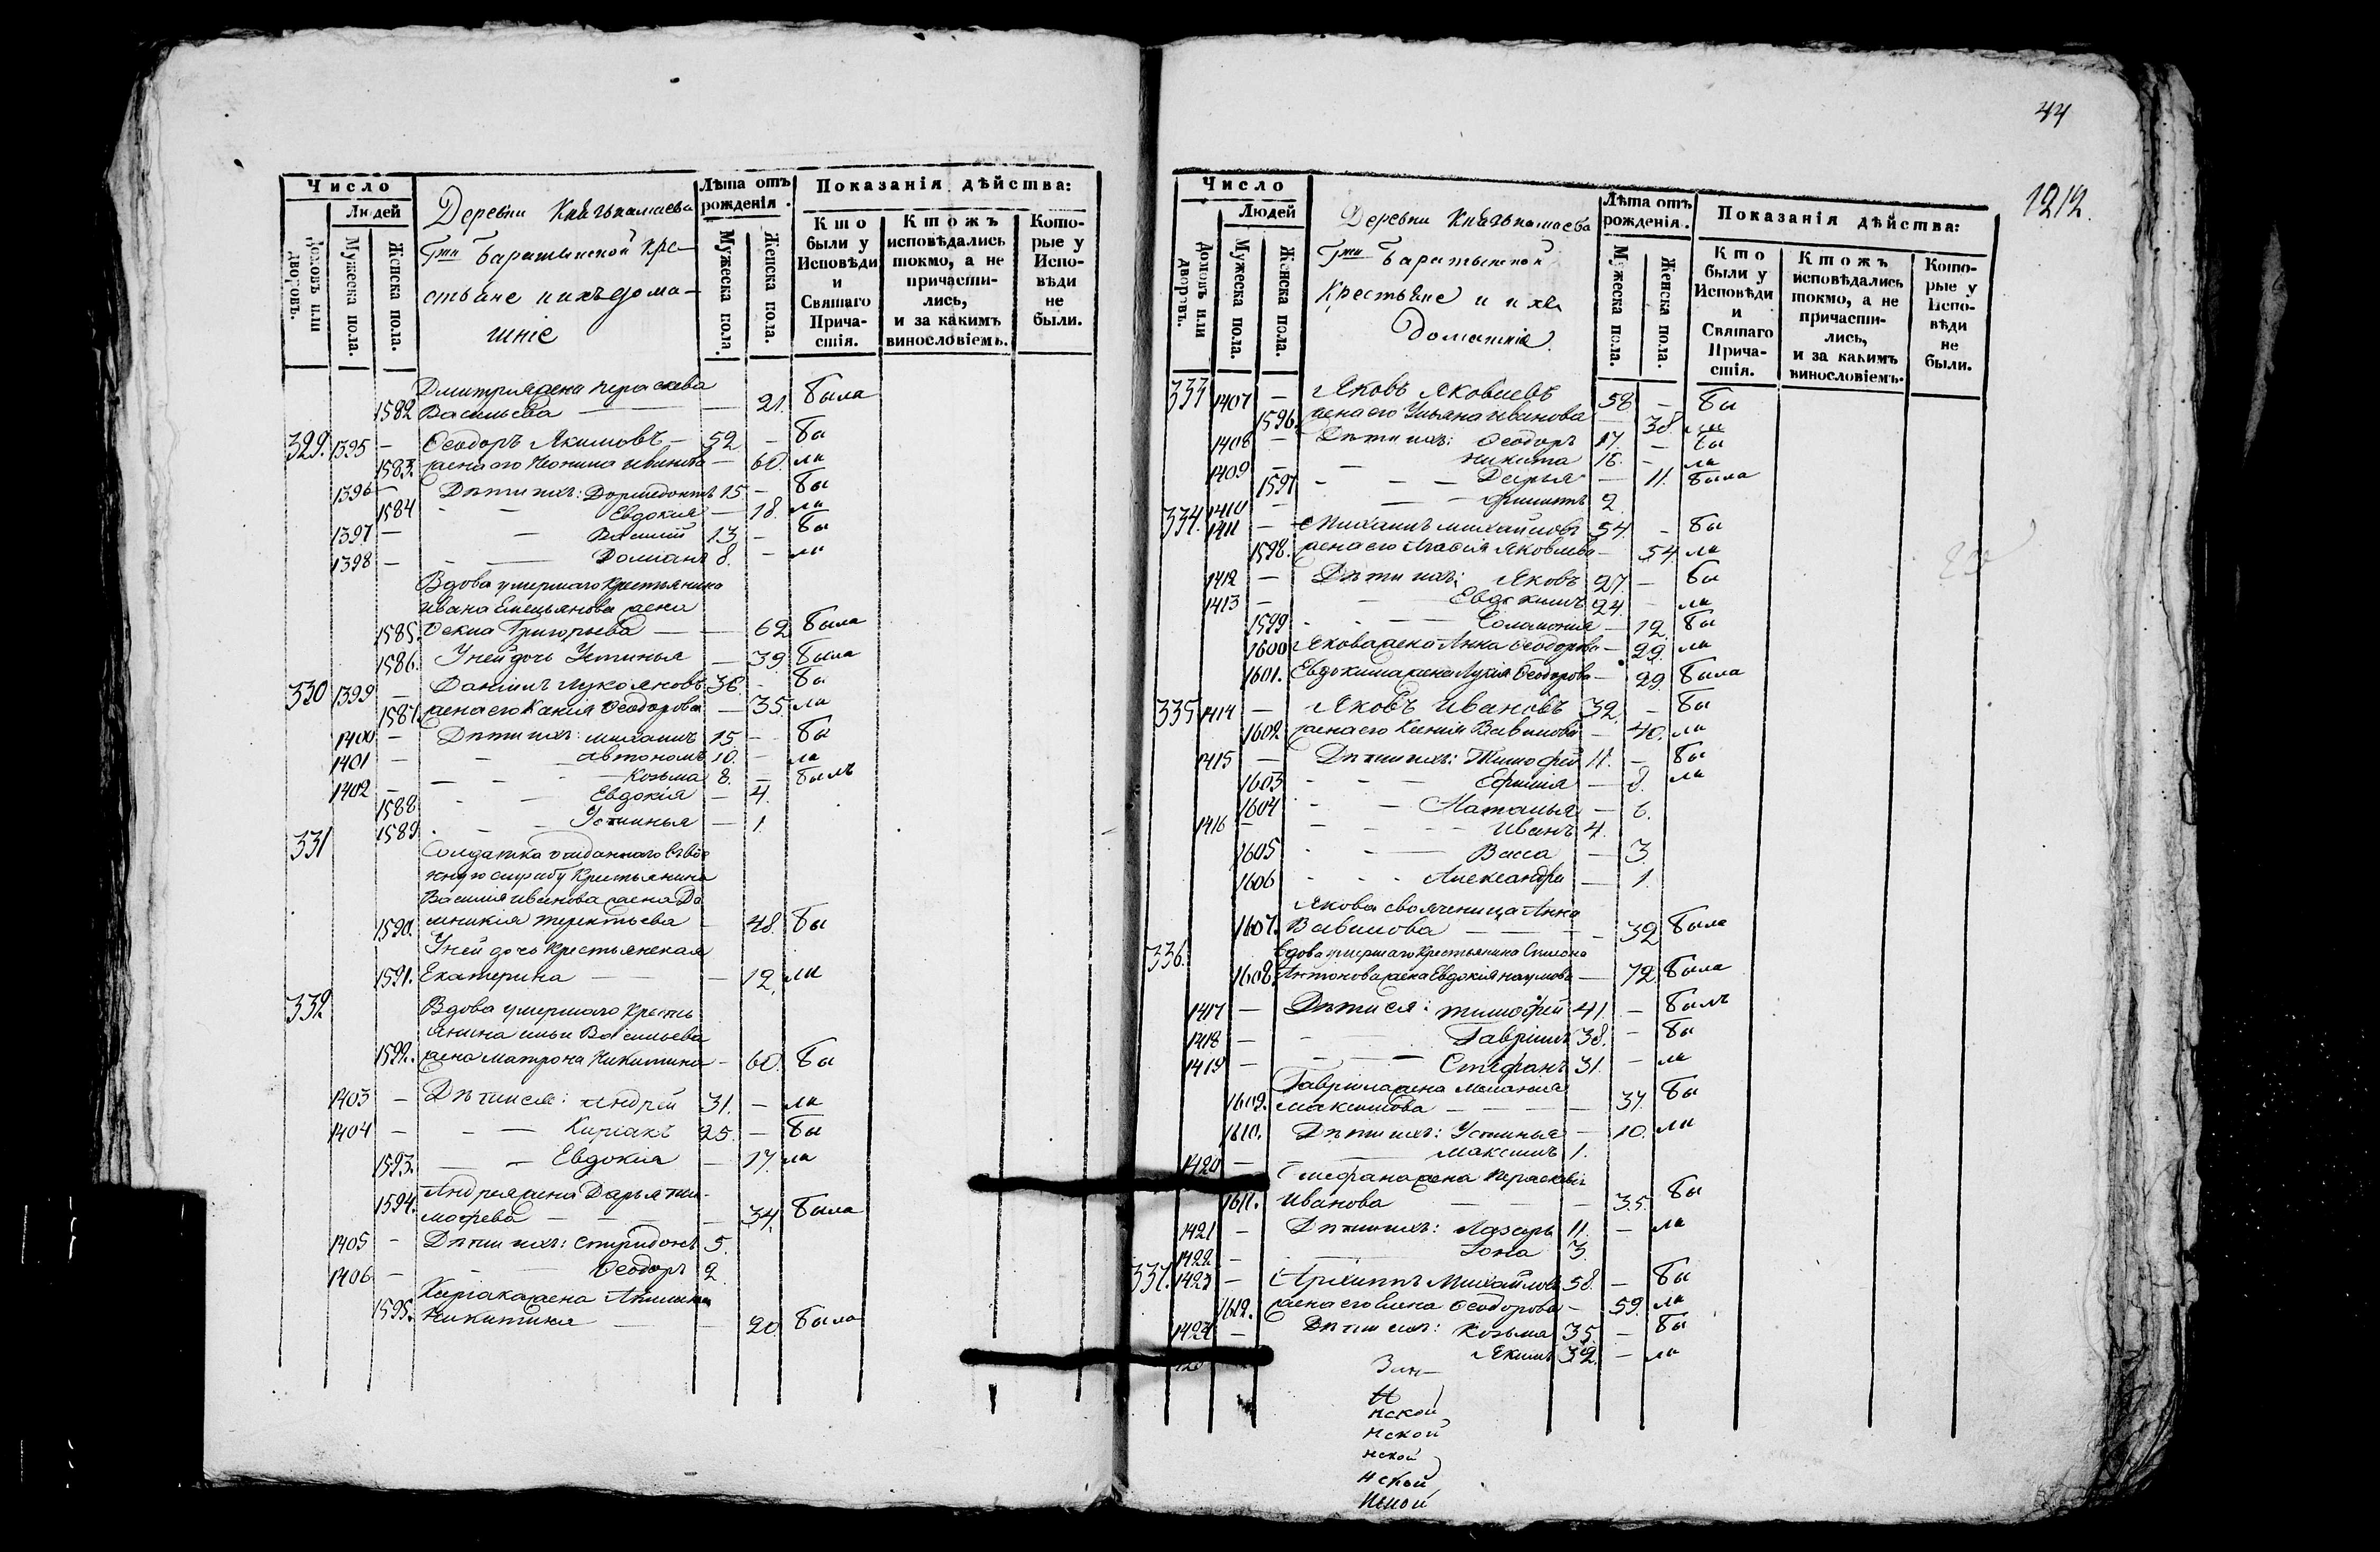 44
1212.
Число
Людей
Домовъ или дворовъ.
Мужеска пола.
Женска пола.
Деревни Князькамаева
Гжи Баратынской кре-
стьяне и ихъ дома-
шніе
Лѣта отъ рожденія.
Мужеска пола.
Женска пола.
Показанія дѣйства:
Кто были у Исповѣди и Святаго Причастія.
Ктожъ исповѣдались токмо, а не причастились, и за какимъ винословіемъ.
Которые у Исповѣди не были.
Дмитрия жена Параскева
1582 Васильева — — 21. была
329. 1395 — Ѳеодоръ Якимовъ — 52 — бы
1583. жена его Иванова — 60. ли
1396 — Дѣти ихъ: Дормедонтъ 15. — бы
1584 Евдокия — 18. ли
1397 — Василий 13 — бы
1398 — Домианъ 8. — ли
Вдова умершаго крестьянина
Ивана Емельянова жена
1585. Ѳекла Григорьева — — 62 была
1586. У ней дочь Устинья — 39. была
330 1399 — Даниилъ Лукояновъ 36. — бы
1587. жена его Ксения Ѳеодорова — 35. ли
1400 — Дѣти ихъ: Михаилъ 15 — бы
1401 — Автономъ 10. — ли
1402 — Козьма 8. — былъ
1588 Евдокія — 4.
1589 Устинья — 1.
331 Солдатка отданнаго въ вое
нную службу крестьянина
Василия Иванова жена До
1590. мникия Терентьева — 48. бы
У ней дочь крестьянская
1591. Екатерина — — 12. ли
332 Вдова умершаго кресть
янина Ильи Васильева
1592. жена Матрона Никитина — 60. бы
1403 — Дѣти ея: Андрей 31. — ли
1404 — Киріакъ 25. — бы
1593. Евдокия — 17. ли
Андрея жена Дарья Ти-
1594. мофеева — 34. была
1405 — Дѣти ихъ: Спиридонъ 5.
1406 — Ѳеодоръ 2
Киріака жена Акилина
1595. Никитина — — 20. была
Число
Людей
Домовъ или дворовъ.
Мужеска пола.
Женска пола.
Деревни Князькамаева
Гжи Баратынской
крестьяне и ихъ
домашніе.
Лѣта отъ рожденія.
Мужеска пола.
Женска пола.
Показанія дѣйства:
Кто были у Исповѣди и Святаго Причастія.
Ктожъ исповѣдались токмо, а не причастились, и за какимъ винословіемъ.
Которые у Исповѣди не были.
333 1407 — Яковъ Яковлевъ 58 — бы
1596. жена его Ульяна Иванова — 38. ли
1408 — Дѣти ихъ: Ѳеодоръ 17. — бы
1409 — Никита 16. — ли
1597 Дарья — 11. была
1410 — Филиппъ 2
334. 1411 — Михаилъ Михайловъ 54. — бы
1598. жена его Агафия Яковлева — 54. ли
1412 — Дѣти ихъ: Яковъ 27. — бы
1413 — Евдокимъ 24. — ли
1599 Соломония — 12. бы
1600 Якова жена Анна Ѳеодорова — 29. ли
1601. Евдокима жена Лукия Ѳеодорова — 29. была
335 1414 — Яковъ Ивановъ 32. — бы
1602. жена его Ксения Вавилова — 40. ли
1415 — Дѣти ихъ: Тимофей 11. — бы
1603 — 8. ли
1604 Наталья — 6.
1416 — Иванъ 4.
1605 Васса — 3.
1606 Александра — 1.
Якова свояченица Анна
1607. Вавилова — — — 32 была
336. Вдова умершаго крестьянина Симеона
1608. Антонова жена Евдокія Наумова — 72. была
1417 — Дѣти ея: Тимофей 41. — былъ
1418 — Гавріилъ 38. — бы
1419 — Стефанъ 31. — ли
Гавріила жена Мелания
1609. Максимова — — — 37. бы
1610. Дѣти ихъ: Устинья — 10. ли
1420 — Максимъ 1.
Стефана жена Параскева
1611. Иванова — — 35. бы
1421 — Дѣти ихъ: Лазарь 11. — ли
1422 — Іона 3.
337. 1423 — Архиппъ Михайловъ 58. — бы
1612. жена его Елена Ѳеодорова — 59. ли
1424 — Дѣти ихъ: Козьма 35. — бы
Якимъ 32. — ли
нской
нской
нской
нской